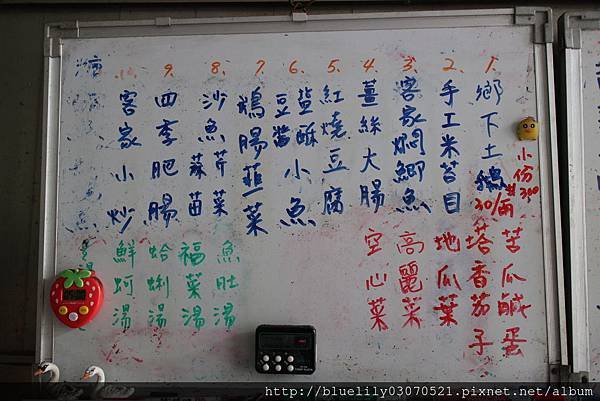 1. 鄉下土鵝 30/兩 小份300
2. 手工米苔目
3. 客家焖鯽魚
4. 薑絲大腸
5. 紅燒豆腐
6. 鹽酥小魚
豆醬
7. 鵝腸韮菜
8. 沙魚芹菜
蒜苗
9. 四季肥腸
10. 客家小炒
苦瓜鹹蛋
塔香茄子
地瓜葉
高麗菜
空心菜
魚肚湯
福菜湯
蛤蜊湯
鮮蚵湯
http://bluelily03070521.pixnet.net/album